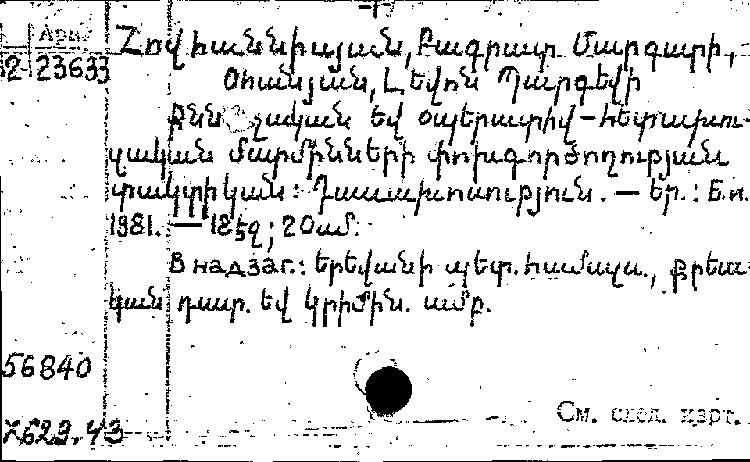 Арм
82-23633
Հովհաննիսյան, Բագրատ Մարգարի,
Օհանյան, Լևոն Պարգևի
Քննչական եվ օպերատիվ-հետախու-
զական մարմինների փոխգործողության
տակտիկան: Դասախոսություն. — Եր.: Б.и.
1981. — 18 էջ; 20սմ.
В надзаг.: Երեվանի պետ. համալս., քրեա-
կան դատ. եվ կրիմին. ամբ.
56840
X629.43
См. след. карт.